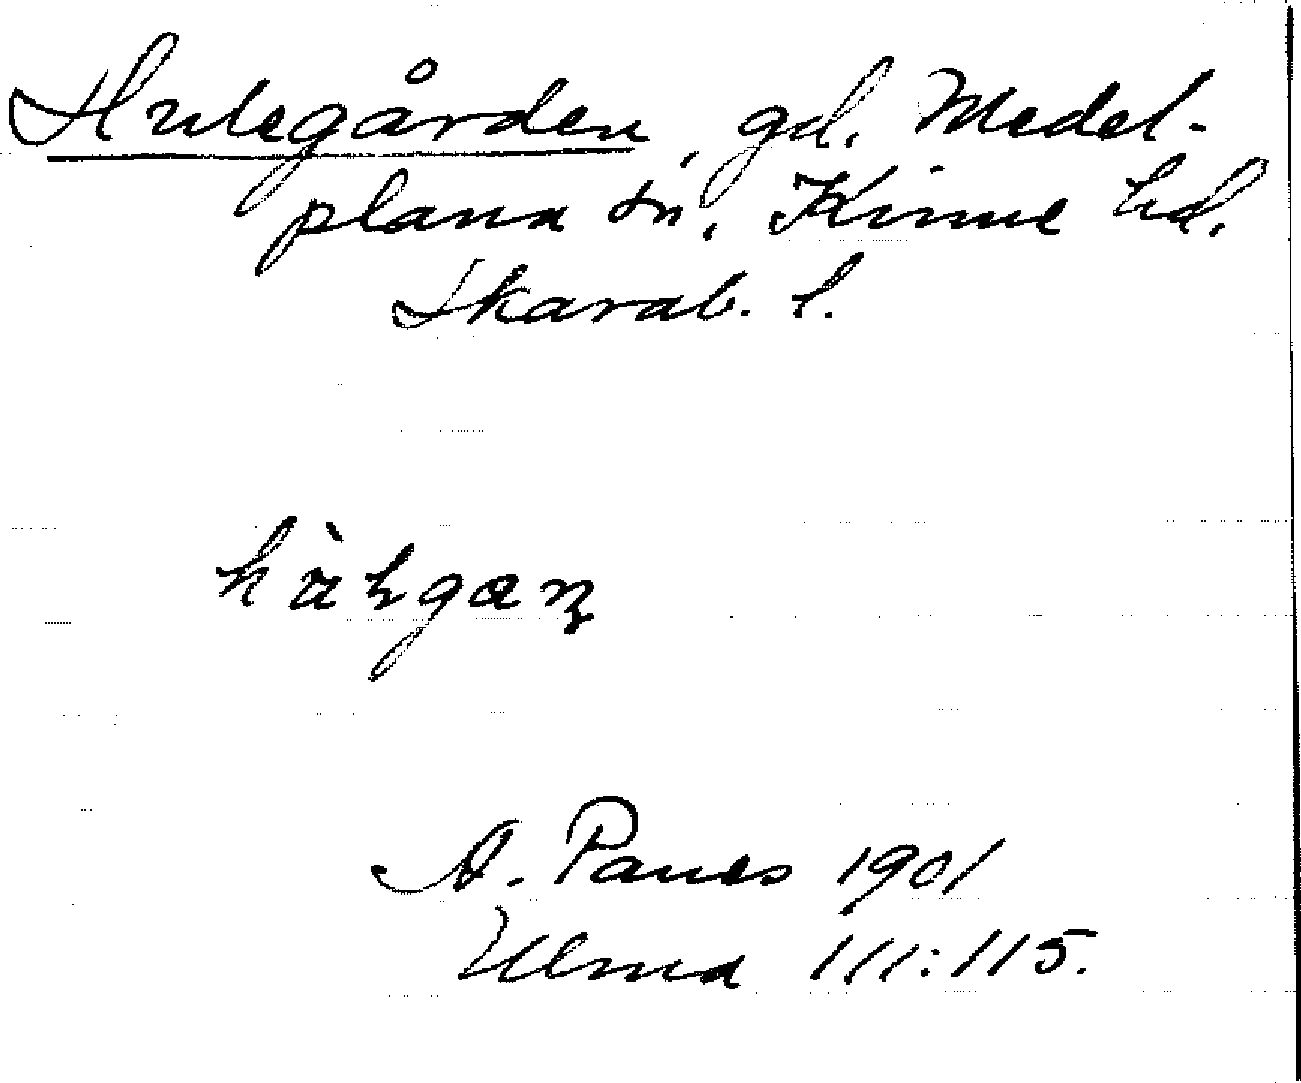 Hulegården, gd. Medel-
plana sn, Kinne hd.
Skarab. l.
A. Panes 1901
Ulma 111:115.